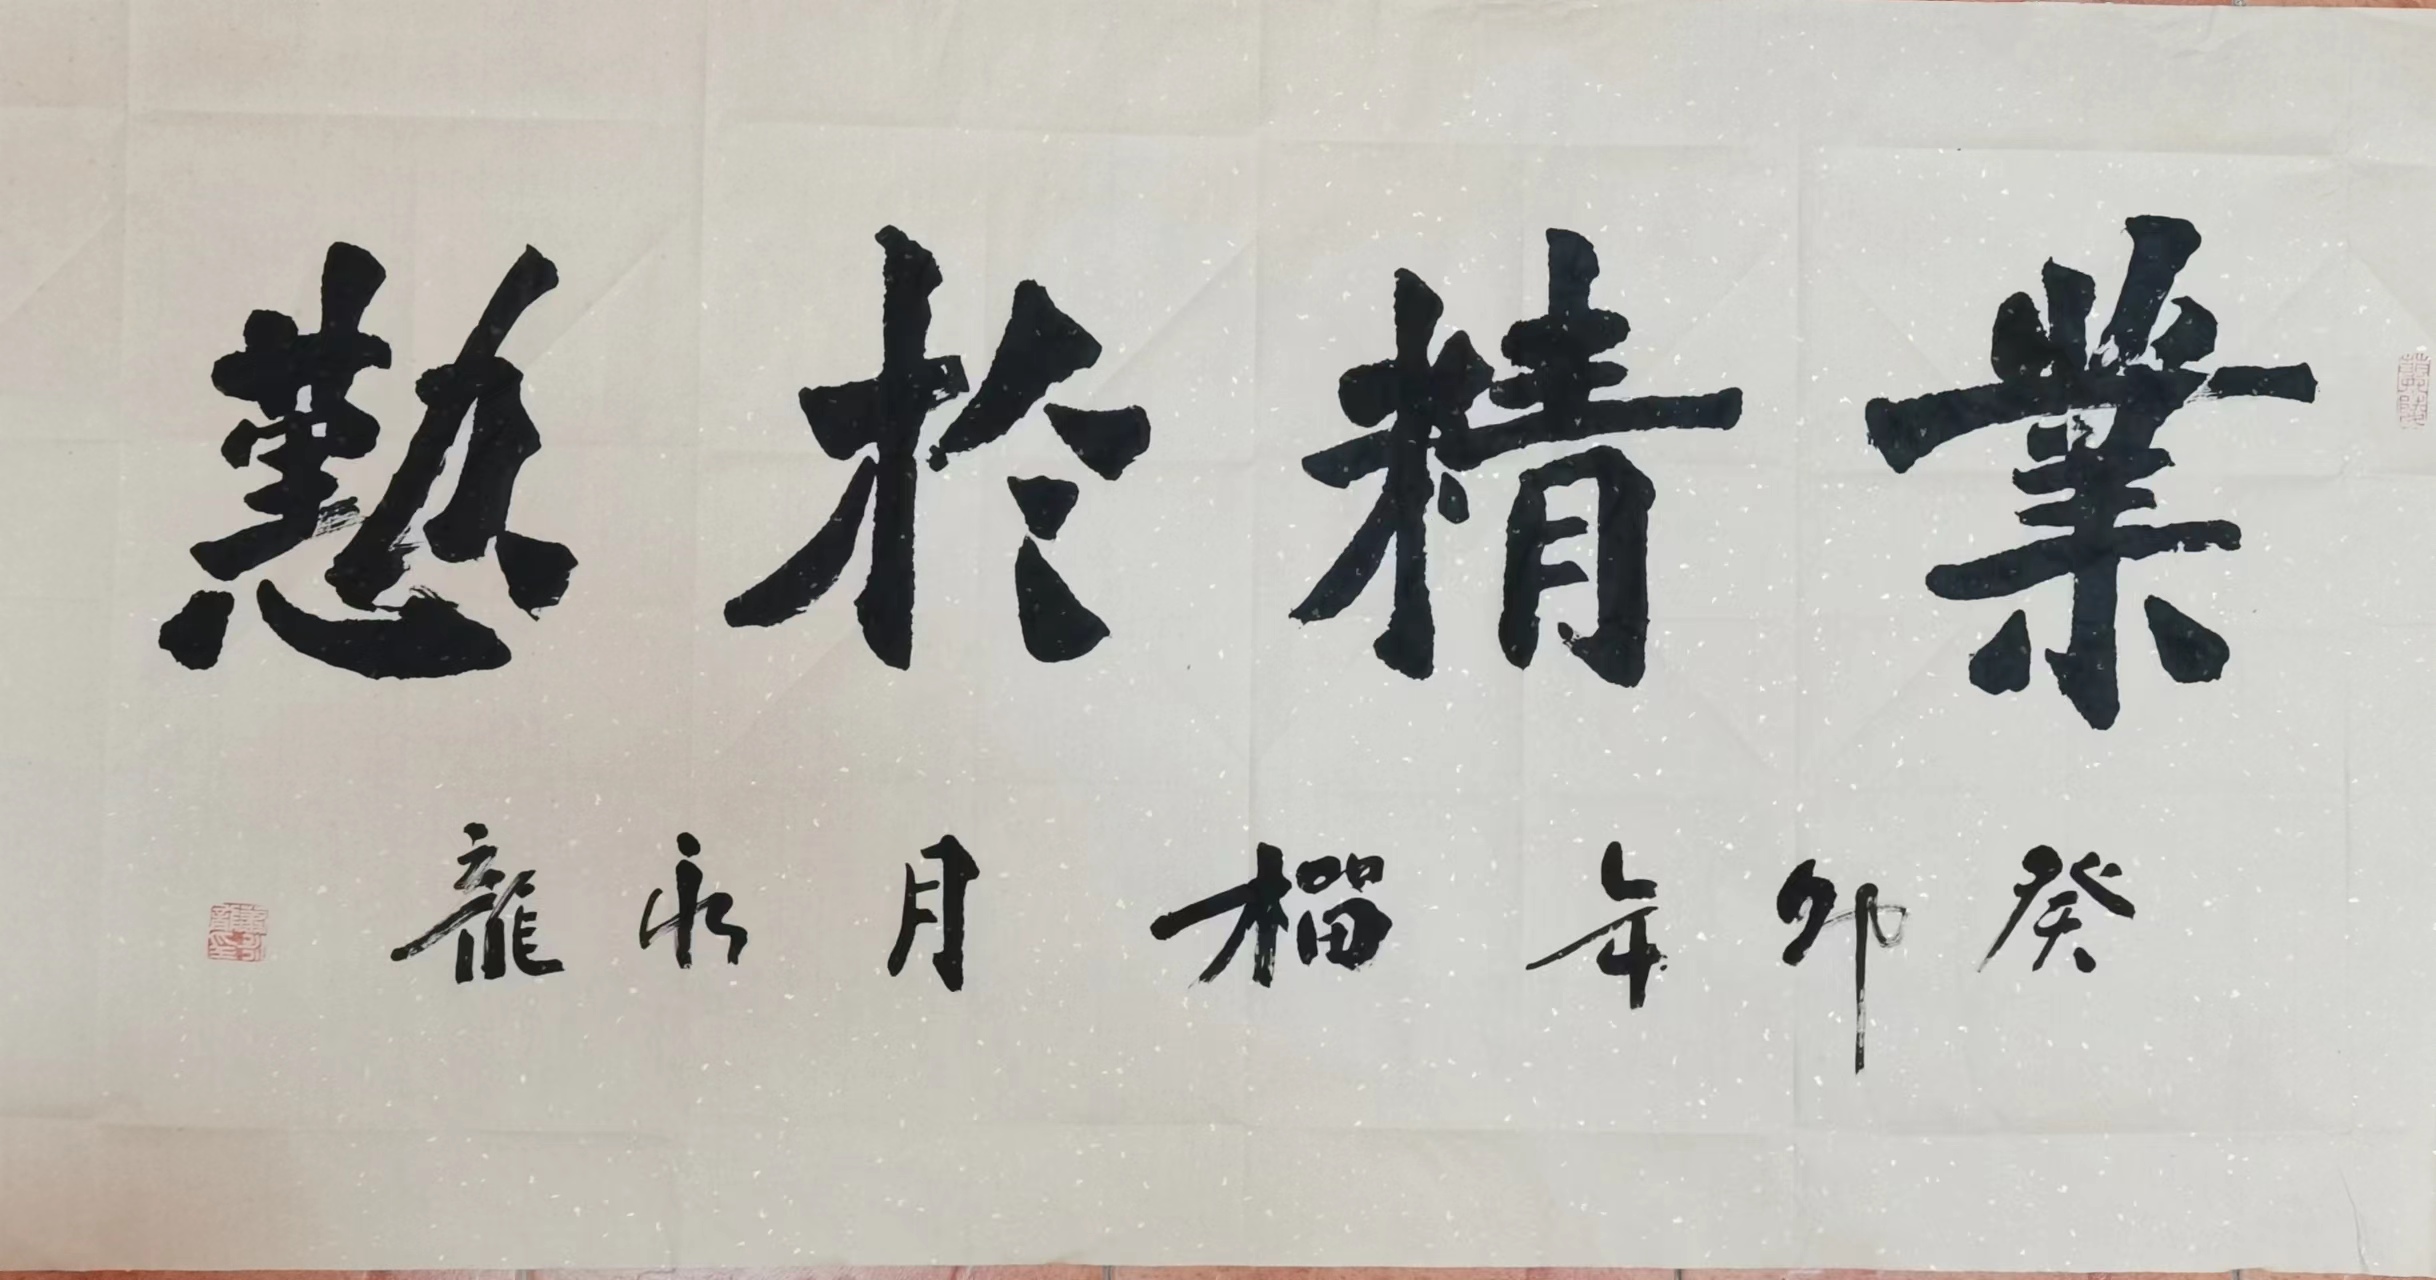 業精於懃
癸卯年榴月永龍